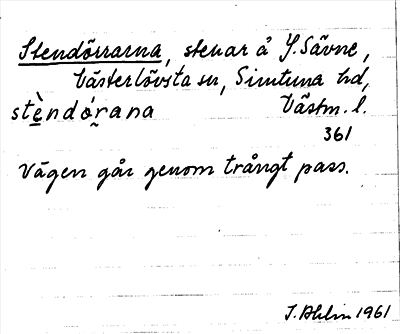 Stendörrarna, stenar å Y. Sävne,
Västerlövsta sn, Simtuna hd,
stè̱ndó̱r̤ana Västm. l.
361
Vägen går genom trångt pass.
I. Ahlin 1961